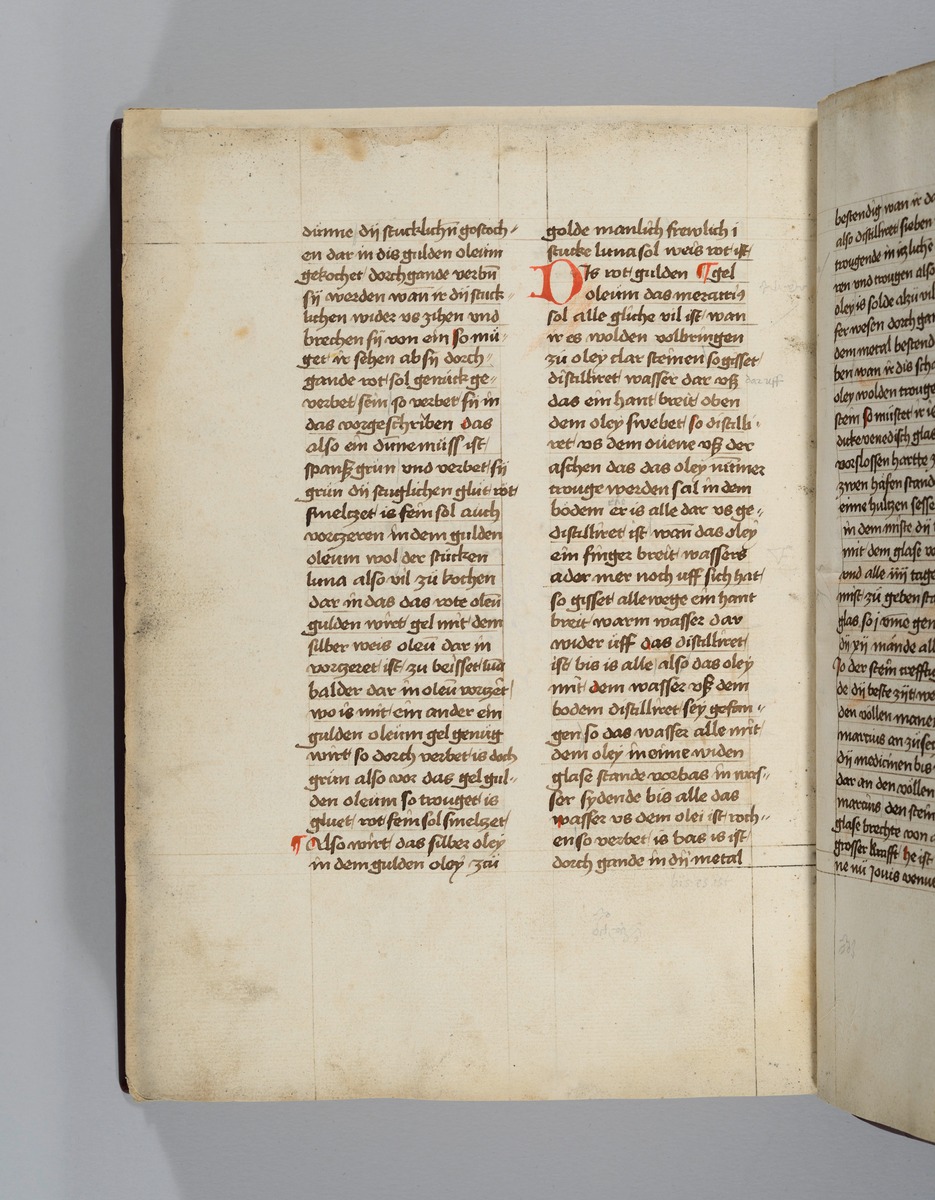 dünne dÿ stucklichn̄ gostoch⸗
en dar in dis gulden oleum
gekochet dorchgande verbn̄
sÿ werden wan̄ ir dÿ stuck⸗
lichen wider vs zihen vnd
brechen sÿ von ein so mü⸗
get ir sehen ab sÿ dorch⸗
gande rot sol genück ge⸗
verbet sein so verbet sÿ in
das vorgeschriben das
also ein düne müss ist
spanß grün vnd verbet sÿ
grün dÿ stuglichen glut rot
smelczet is fein sol auch
vorczeren in dem gulden
oleum wol der stücken
luna also vil zü kochen
dar in das das rote oleū
gulden wirt gel mit dem
silber weis oleū dar in
vorczeret ist zu beisset
balder dar in oleū vorczert
wo is mit ein ander ein
gulden oleum gel genüg
wirt so dorch verbet is doch
grün also vor das gel gul⸗
den oleum so trouget is
gluet rot fein sol smelczet
¶ Also wirt das silber oley
in dem gulden oley zü
golde manlich frewlich i
stucke luna sol weis rot ist
Dis rot gulden ¶ gel
oleum das
sol alle gliche vil ist wan
ir es wolden volbringen
zü oley clar steinen so gisset
distilliret wasser dar vß
das ein hant breit oben
dem oley swebet so distilli⸗
ret vs dem ouene vß der
aschen das das oley nümer
trouge werden sal in dem
bodem er is alle dar vs ge⸗
distilliret ist wan das oley
ein finger breit wassers
ader mer noch uff sich hat
so gisset allewege ein hant
breit warm wasser dar
wider üff das distilliret
ist bis is alle also das oley
mit dem wasser vß dem
bodem distilliret sey gefan⸗
gen so das wasser alle mit
dem oley in eime widen
glase stande vorbas in was⸗
ser sydende bis alle das
wasser vs dem olei ist roch⸗
en so verbet is bas is ist
dorch gande in dÿ metal
dar uff
bis es ist
bestendig wan ir
also distilliret sieben
trougende in
ren vnd trougen also
oley is solde
fer wesen dorch
dem metal
ben wan ir dis
oley wolden
stein so müstet ir
dicke venedisch
vorslossen
zwen hafen
eine hultzen
in dem miste dÿ
mit dem glase
vnd alle iiij tage
mist zü geben
glas so
dÿ xij mande
so der stein
de dÿ beste zijt
den vollen
marcius an
dÿ medicinen bis
dar an den vollen
marcius den stein
glase brechte von
grosser krafft he ist
ne nü Jouis